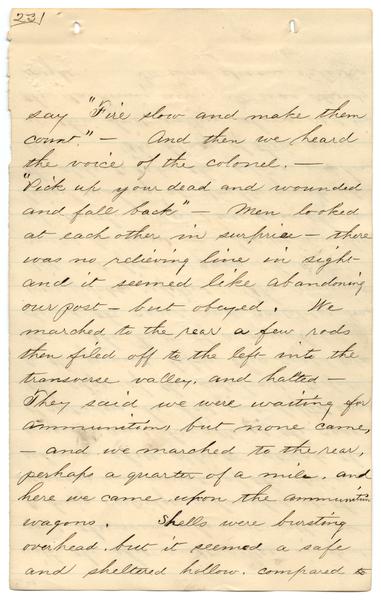 231
say "Fire slow and make them
count." — And then we heard
the voice of the colonel. —
"Pick up your dead and wounded
and fall back" — Men looked
at each other in surprise — there
was no relieving line in sight
and it seemed like abandoning
our post — but obeyed. We
marched to the rear a few rods
then filed off to the left into the
transverse valley, and halted —
They said we were waiting for
ammunition, but none came,
— and we marched to the rear,
perhaps a quarter of a mile, and
here we came upon the ammunition
wagons. Shells were bursting
overhead, but it seemed a safe
and sheltered hollow, compared to